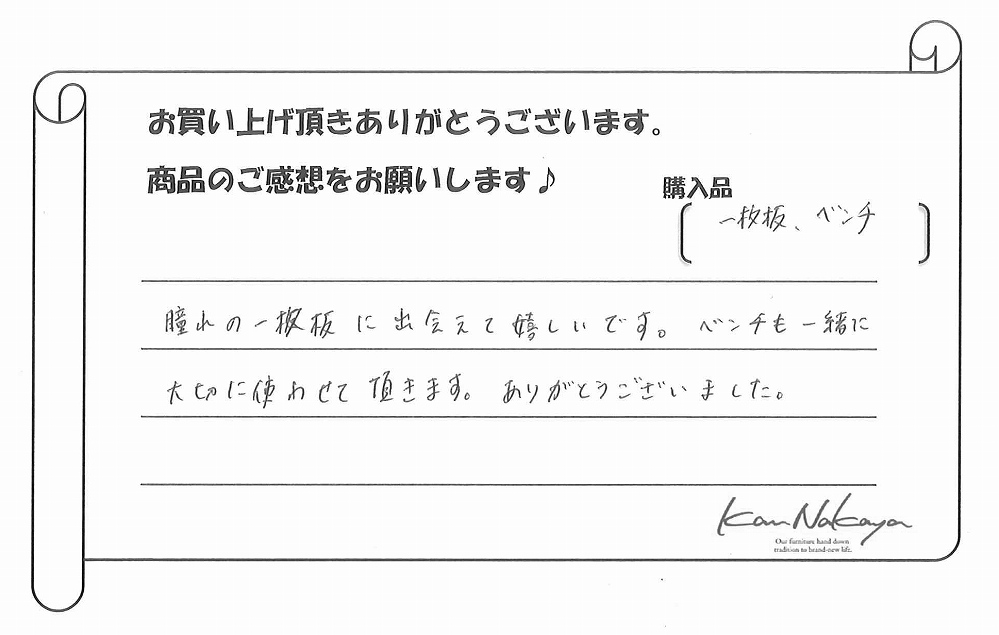 お買い上げ頂きありがとうございます。
商品のご感想をお願いします♪
購入品
一枚板、ベンチ
憧れの一枚板に出会えて嬉しいです。ベンチも一緒に
大切に使わせて頂きます。ありがとうございました。
Kan Nakaya
Our furniture hand down
tradition to brand-new life.